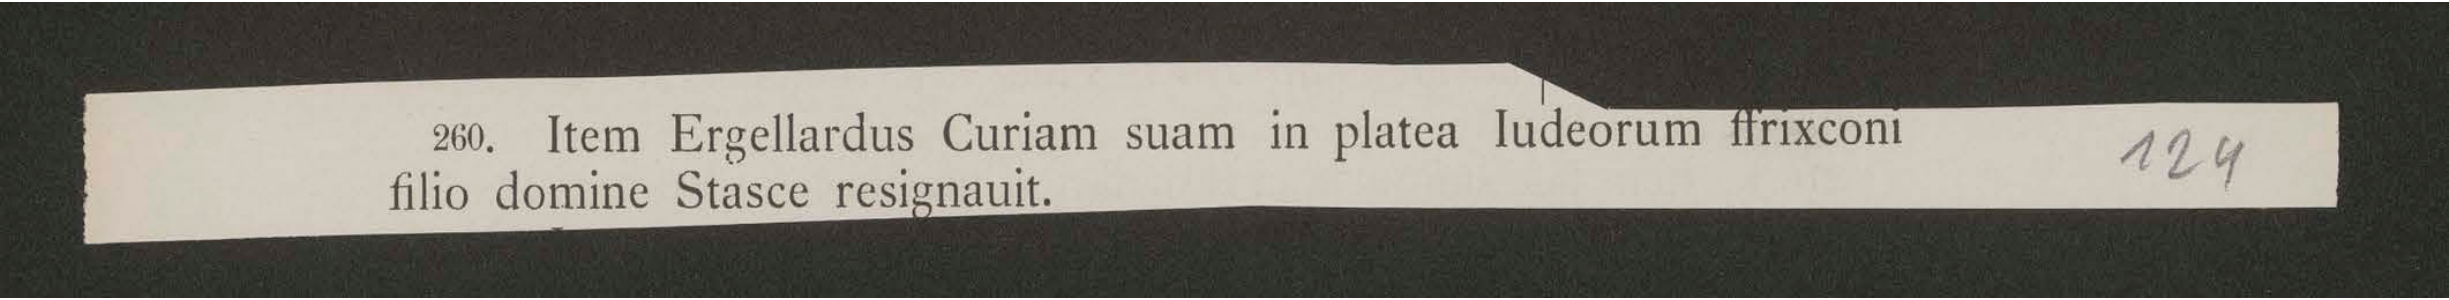 260. Item Ergellardus Curiam suam in platea Iudeorum ffrixconi
filio domine Stasce resignauit.
124